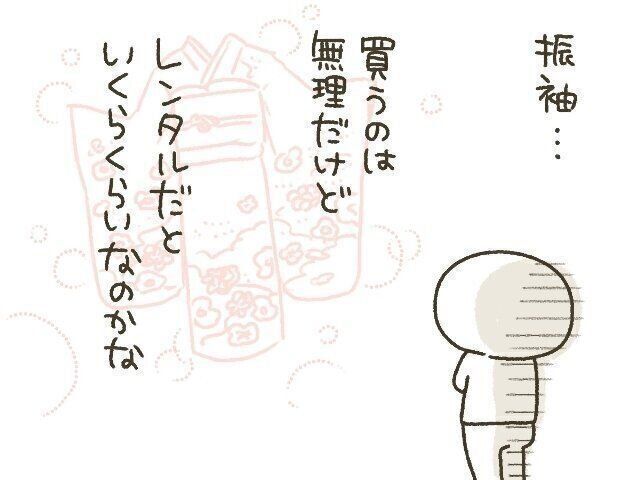 振袖…
買うのは
無理だけど
レンタルだと
いくらくらいなのかな